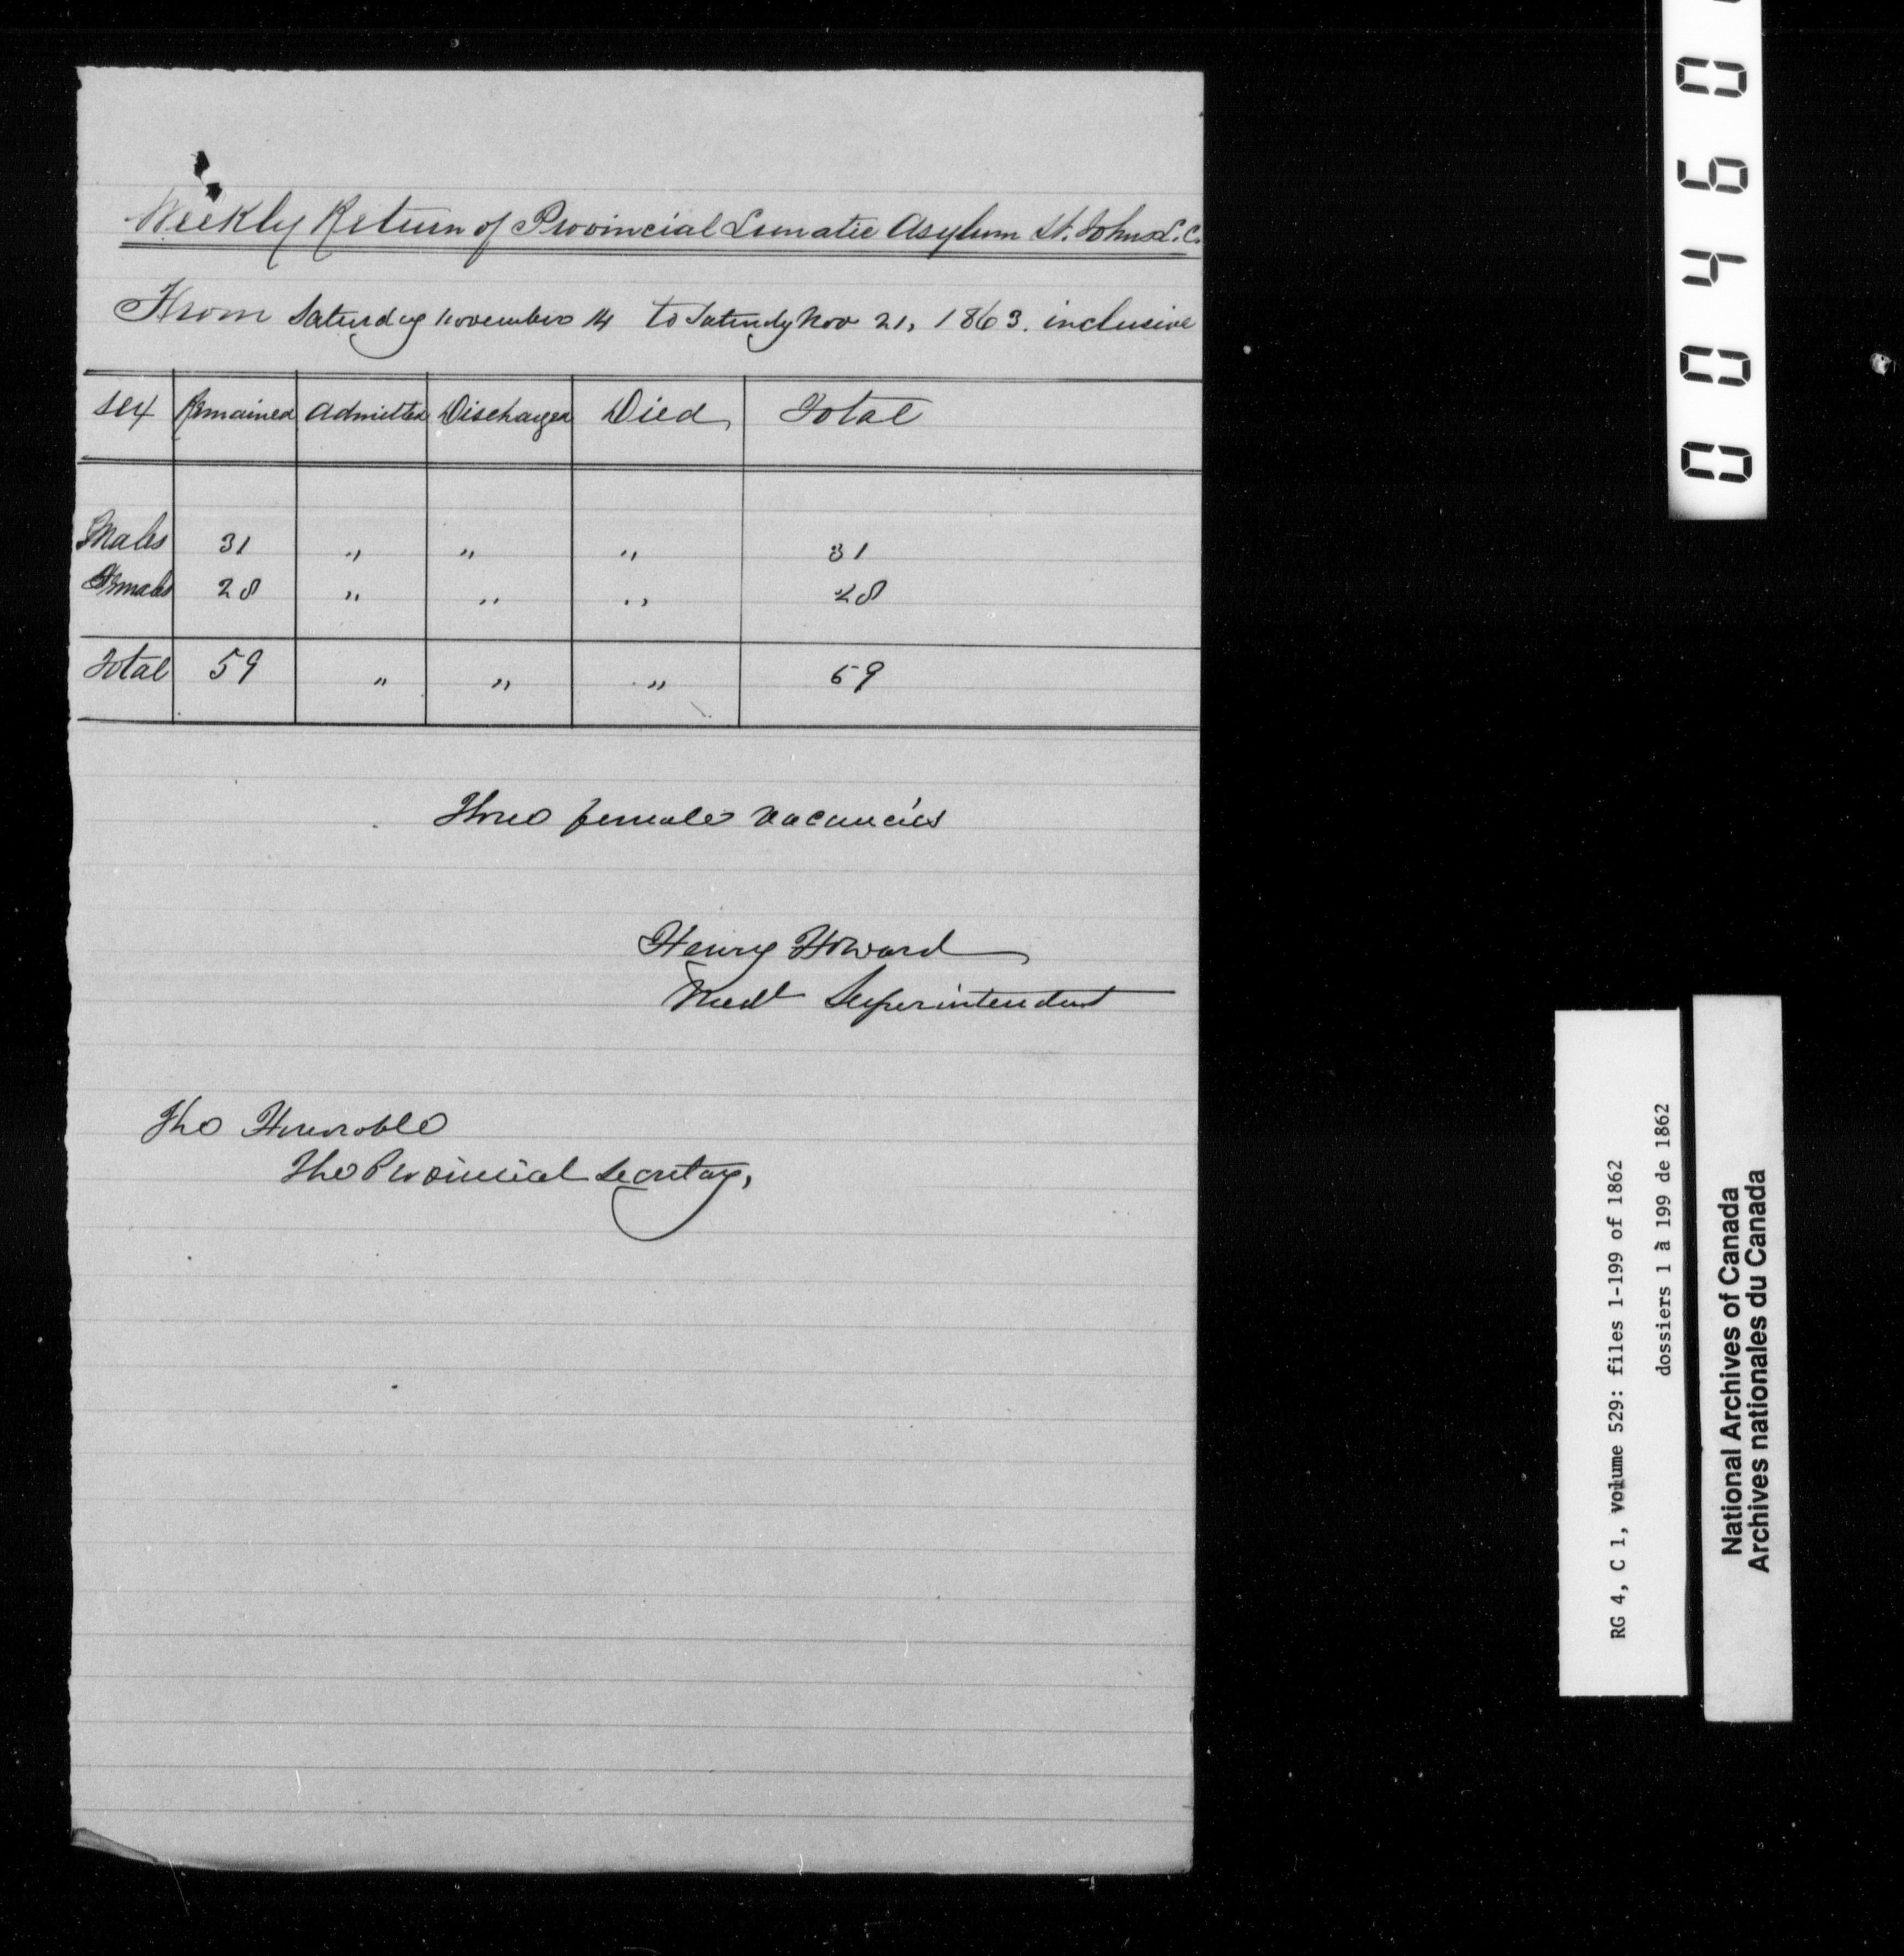 Weekly Return of Provincial Lunatic Asylum St. Johns L. C.
From Saturday November 14 to Saturdy Nov 21, 1863. inclusive
Sex Remained Admitted Discharged Died Total
Males 31 " " " 31
Females 28 " " " 28
Total 59 " " " 59
Three female vacancies
Henry Howard
Medl Superintendent
The Honorable
The Provincial Secretary,
0 0 4 6 0
RG 4, C 1, volume 529: files 1-199 of 1862
dossiers 1 à 199 de 1862
National Archives of Canada
Archives nationales du Canada